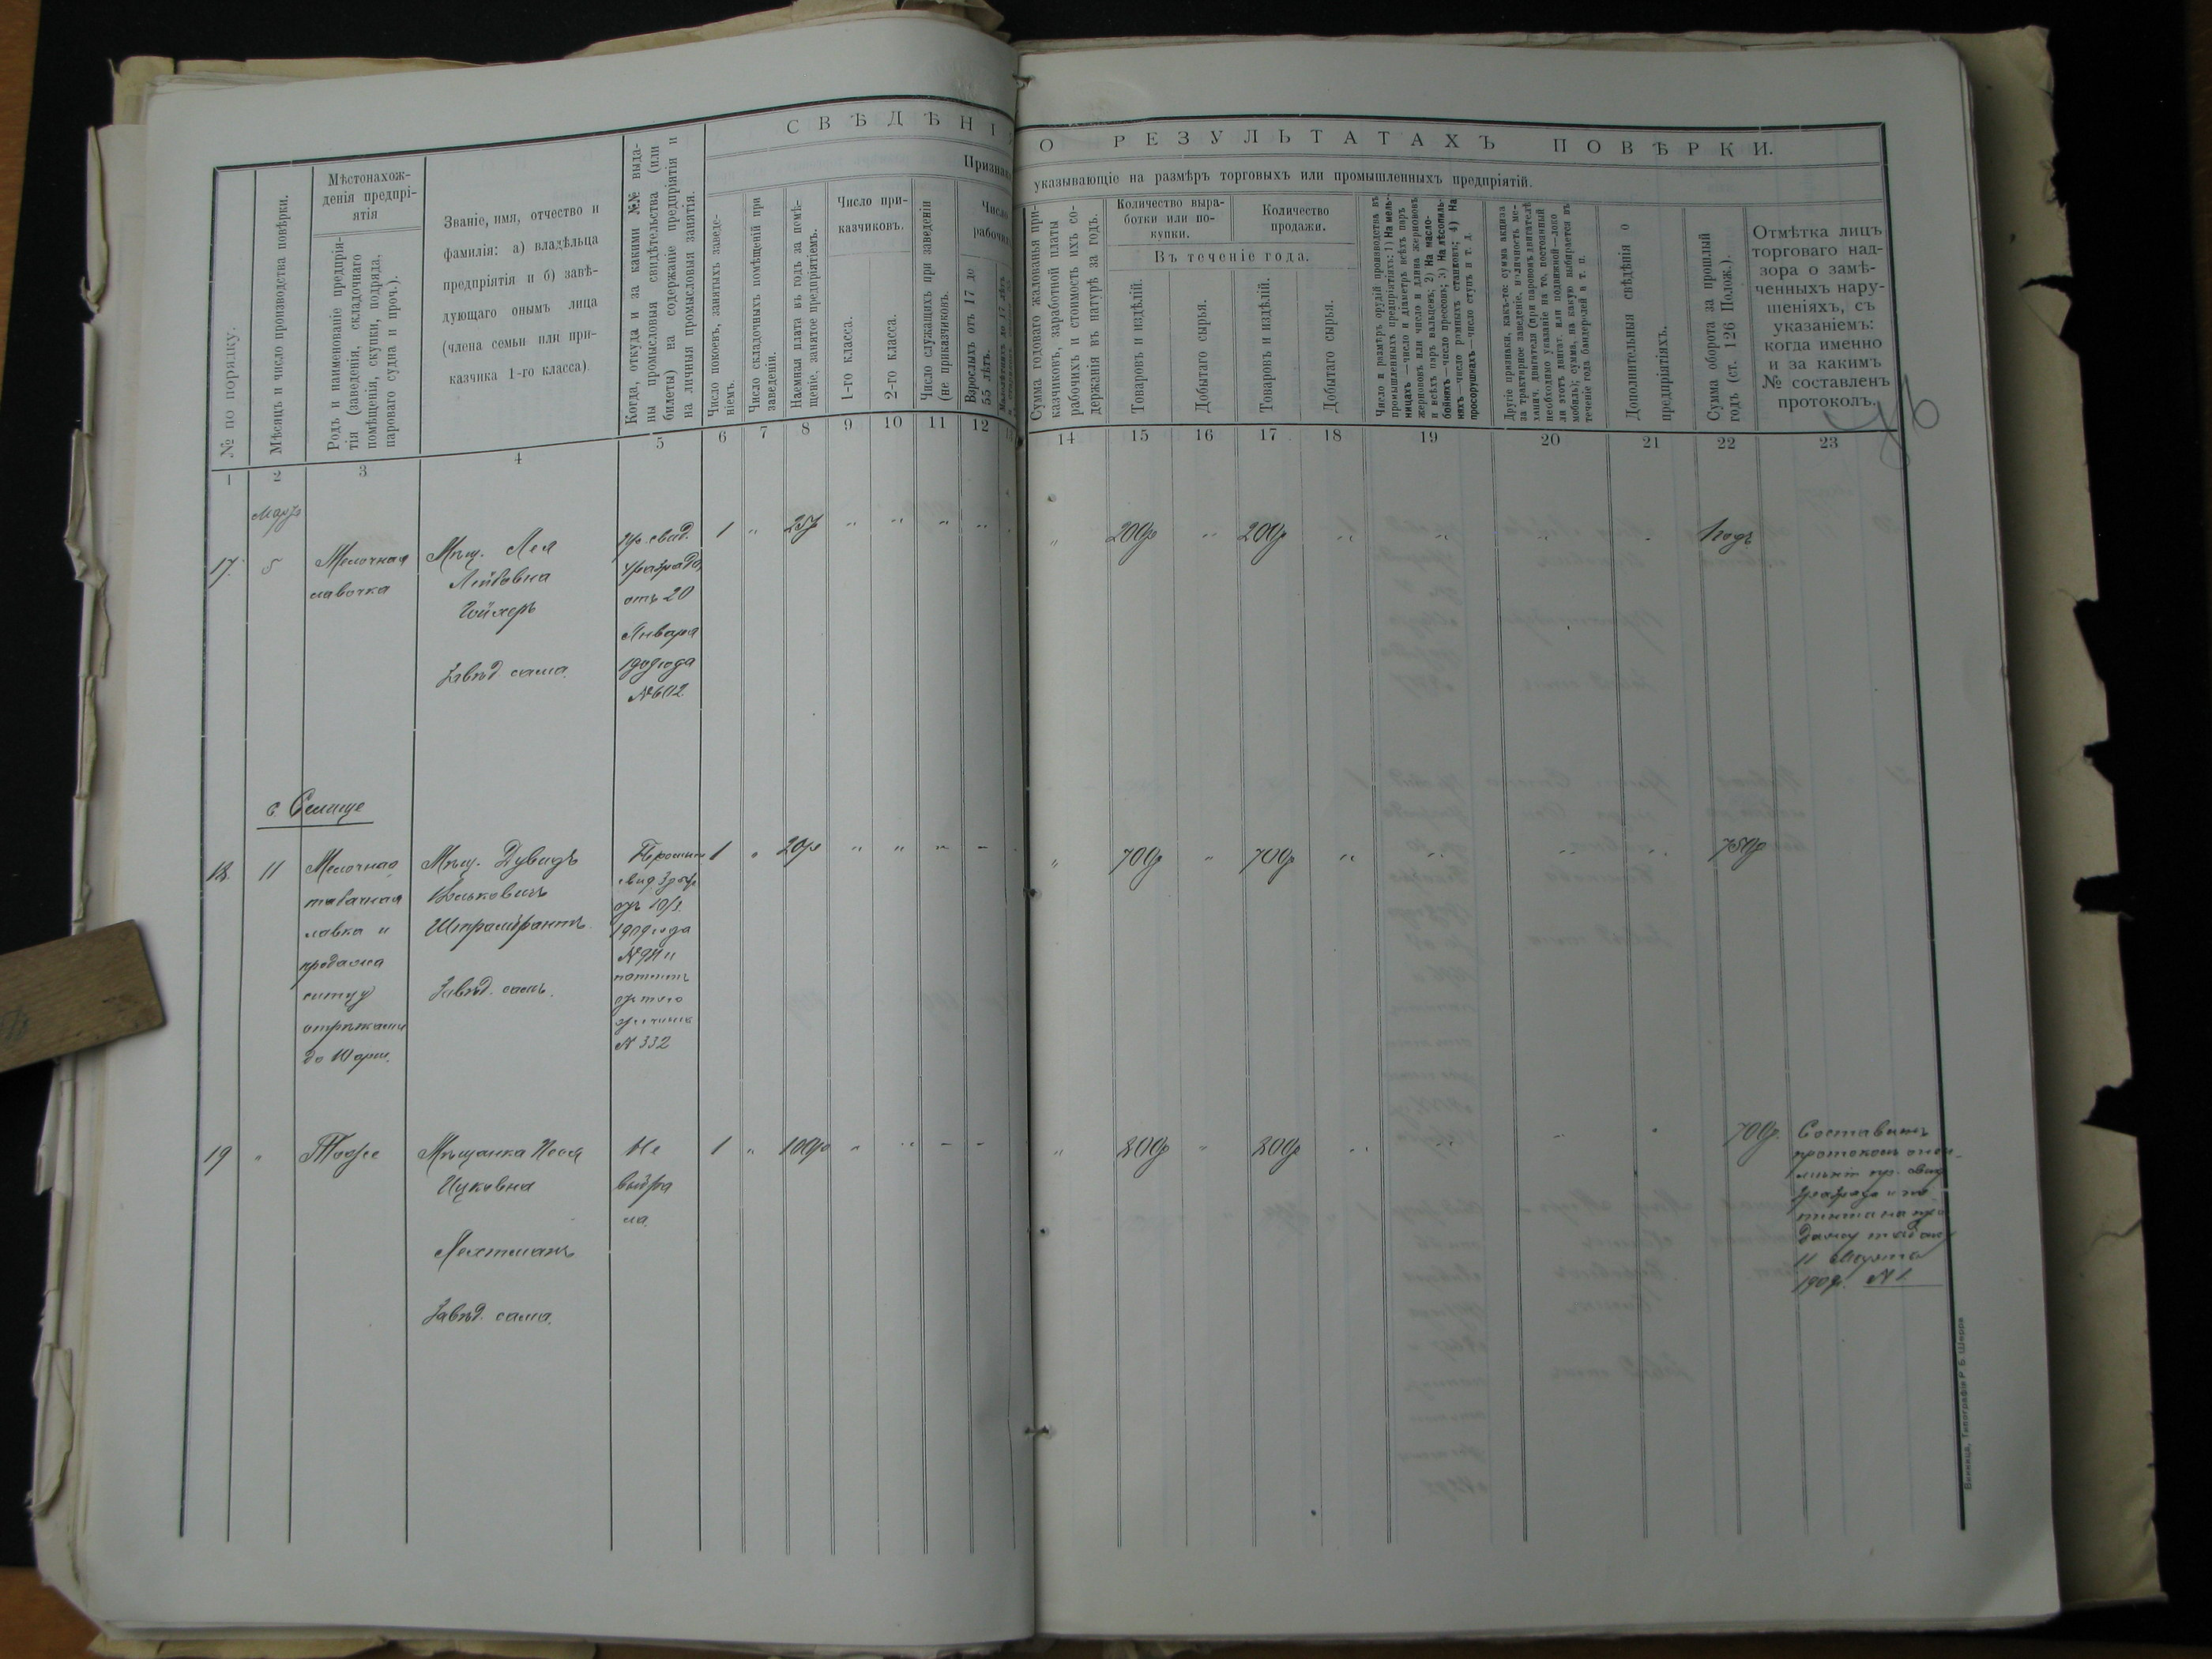 СВѢДѢНІЯ О РЕЗУЛЬТАТАХЪ ПОВѢРКИ.
Признаки указывающіе на размѣръ торговыхъ или промышленныхъ предпріятій.
№ по порядку.
Мѣсяцъ и число производства повѣрки.
Мѣстонахож-
денія предпрі-
ятія
Родъ и наименованіе предпрія-
тія (заведенія, складочнаго
помѣщенія, скупки, подряда,
пароваго судна и проч.).
Званіе, имя, отчество и
фамилія: а) владѣльца
предпріятія и б) завѣ-
дующаго онымъ лица
(члена семьи или при-
казчика 1-го класса).
Когда, откуда и за какими №№ выда-
ны промысловыя свидѣтельства (или
билеты) на содержаніе предпріятія и
на личныя промысловыя занятія.
Число покоевъ, занятыхъ заведе-
ніемъ.
Число складочныхъ помѣщеній при
заведеніи.
Наемная плата въ годъ за помѣ-
щеніе, занятое предпріятіемъ.
Число при-
казчиковъ.
1-го класса.
2-го класса.
Число служащихъ при заведеніи
(не приказчиковъ.
Число
рабочихъ
Взрослыхъ отъ 17 до
55 лѣтъ.
Сумма годоваго жалованья при-
казчиковъ, заработной платы
рабочихъ и стоимость ихъ со-
держанія въ натурѣ за годъ.
Количество выра-
ботки или по-
купки.
Количество
продажи.
Въ теченіе года.
Товаровъ и издѣлій.
Добытаго сырья.
Товаровъ и издѣлій.
Добытаго сырья.
Число и размѣръ орудій производства въ
промышленныхъ предпріятіяхъ: 1) На мель-
ницахъ—число и діаметръ всѣхъ паръ
жернововъ или число и длина жернововъ
и всѣхъ паръ вальцевъ; 2) На масло-
бойняхъ—число прессовъ; 3) На лѣсопиль-
няхъ—число рамныхъ станковъ; 4) На
просорушкахъ—число ступъ и т. д.
Другіе признаки, какъ-то: сумма акциза
за трактирное заведеніе, наличность ме-
ханич. двигателя (при паровомъ двигателѣ
необходимо указаніе на то, постоянный
ли этотъ двигат. или подвижной—локо
мобиль); сумма, на какую выбирается въ
теченіе года бандеролей и т. п.
Дополнительныя свѣдѣнія о
предпріятіяхъ.
Сумма оборота за прошлый
годъ (ст. 126 Полож.).
Отмѣтка лицъ
торговаго над-
зора о замѣ-
ченныхъ нару-
шеніяхъ, съ
указаніемъ:
когда именно
и за какимъ
№ составленъ
протоколъ.
1 2 3 4 5 6 7 8 9 10 11 12 14 15 16 17 18 19 20 21 22 23
Мартъ
17. 5
Мелочная
лавочка
Мѣщ. Лея
Лейбовна
Гойхеръ
Завѣд. сама.
отъ 20
Января
1909 года
№ 602
1 " 25р " " " "
" 200р " 200р " " " "
с. Селище
18. 11
Мелочная
табачная
лавка и
продажа
ситцу
отрѣзками
до 10 арш.
Мѣщ. Дувидъ
Завѣд. самъ.
1909 года
патентъ
№ 332
1 " 20р " " " -
" 700р " 700р " " " " 750р
19 "
Тоже
Мѣщанка Песя
Ицковна
Лехтманъ
Завѣд. сама.
Не
выбра
ла.
1 " 100р " " - -
" 800р " 800р " " " 700р.
Составленъ
протоколъ
11 Марта
1909г. № 1.
Винница, Типографія Р. Б. Шерра